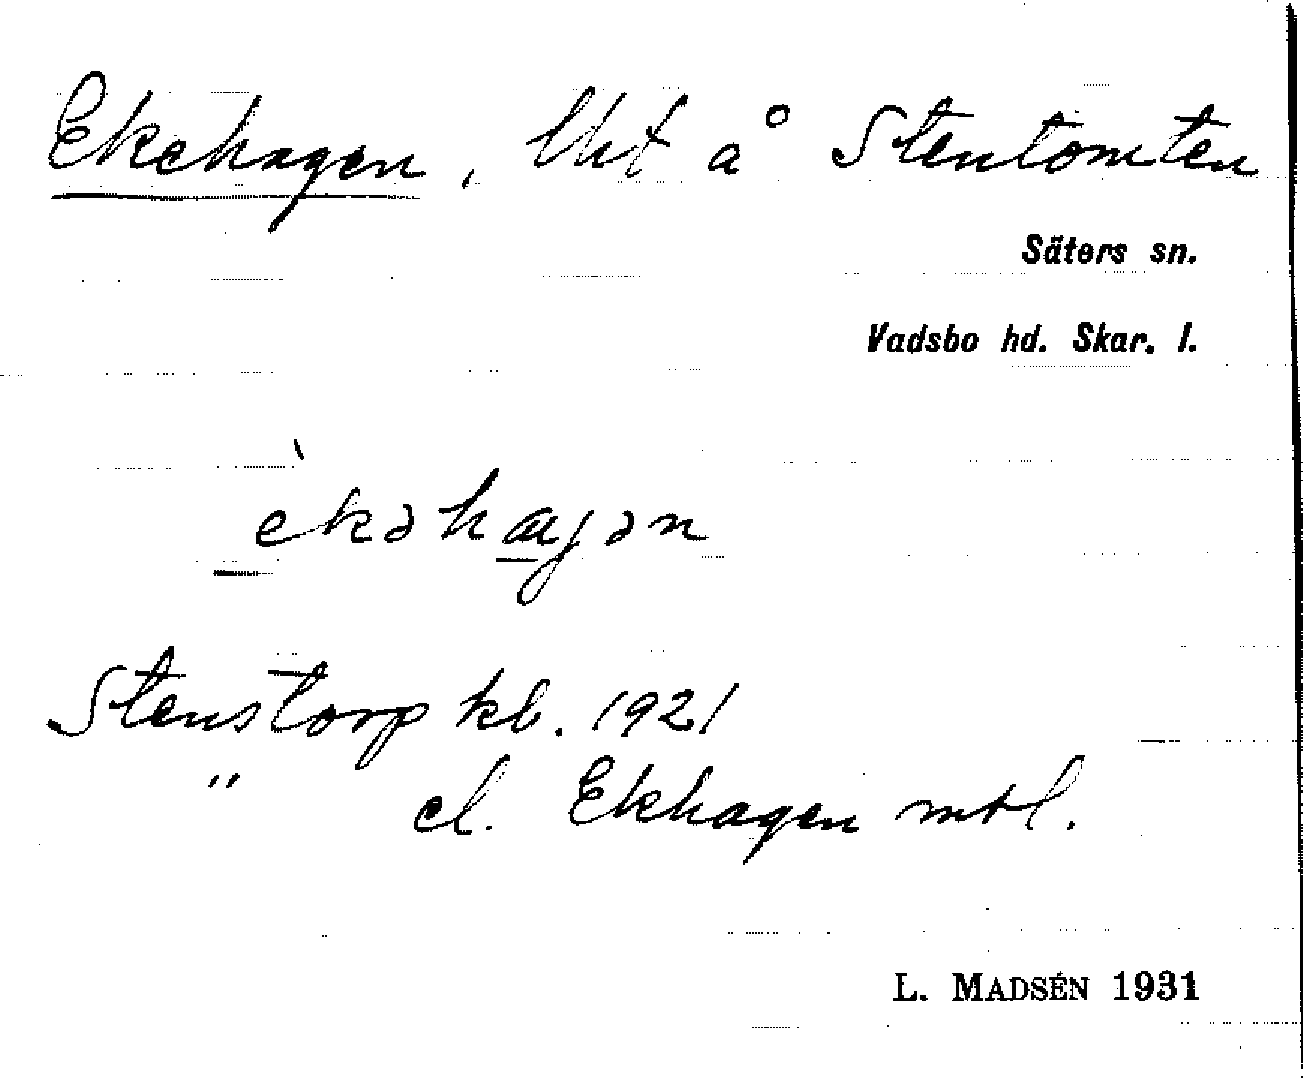 Ekehagen, lht å Stentomten
Säters sn.
Vadsbo hd. Skar. l.
Stenstorp kb. 1921
" el. Ekhagen mtl.
L. MADSÉN 1931